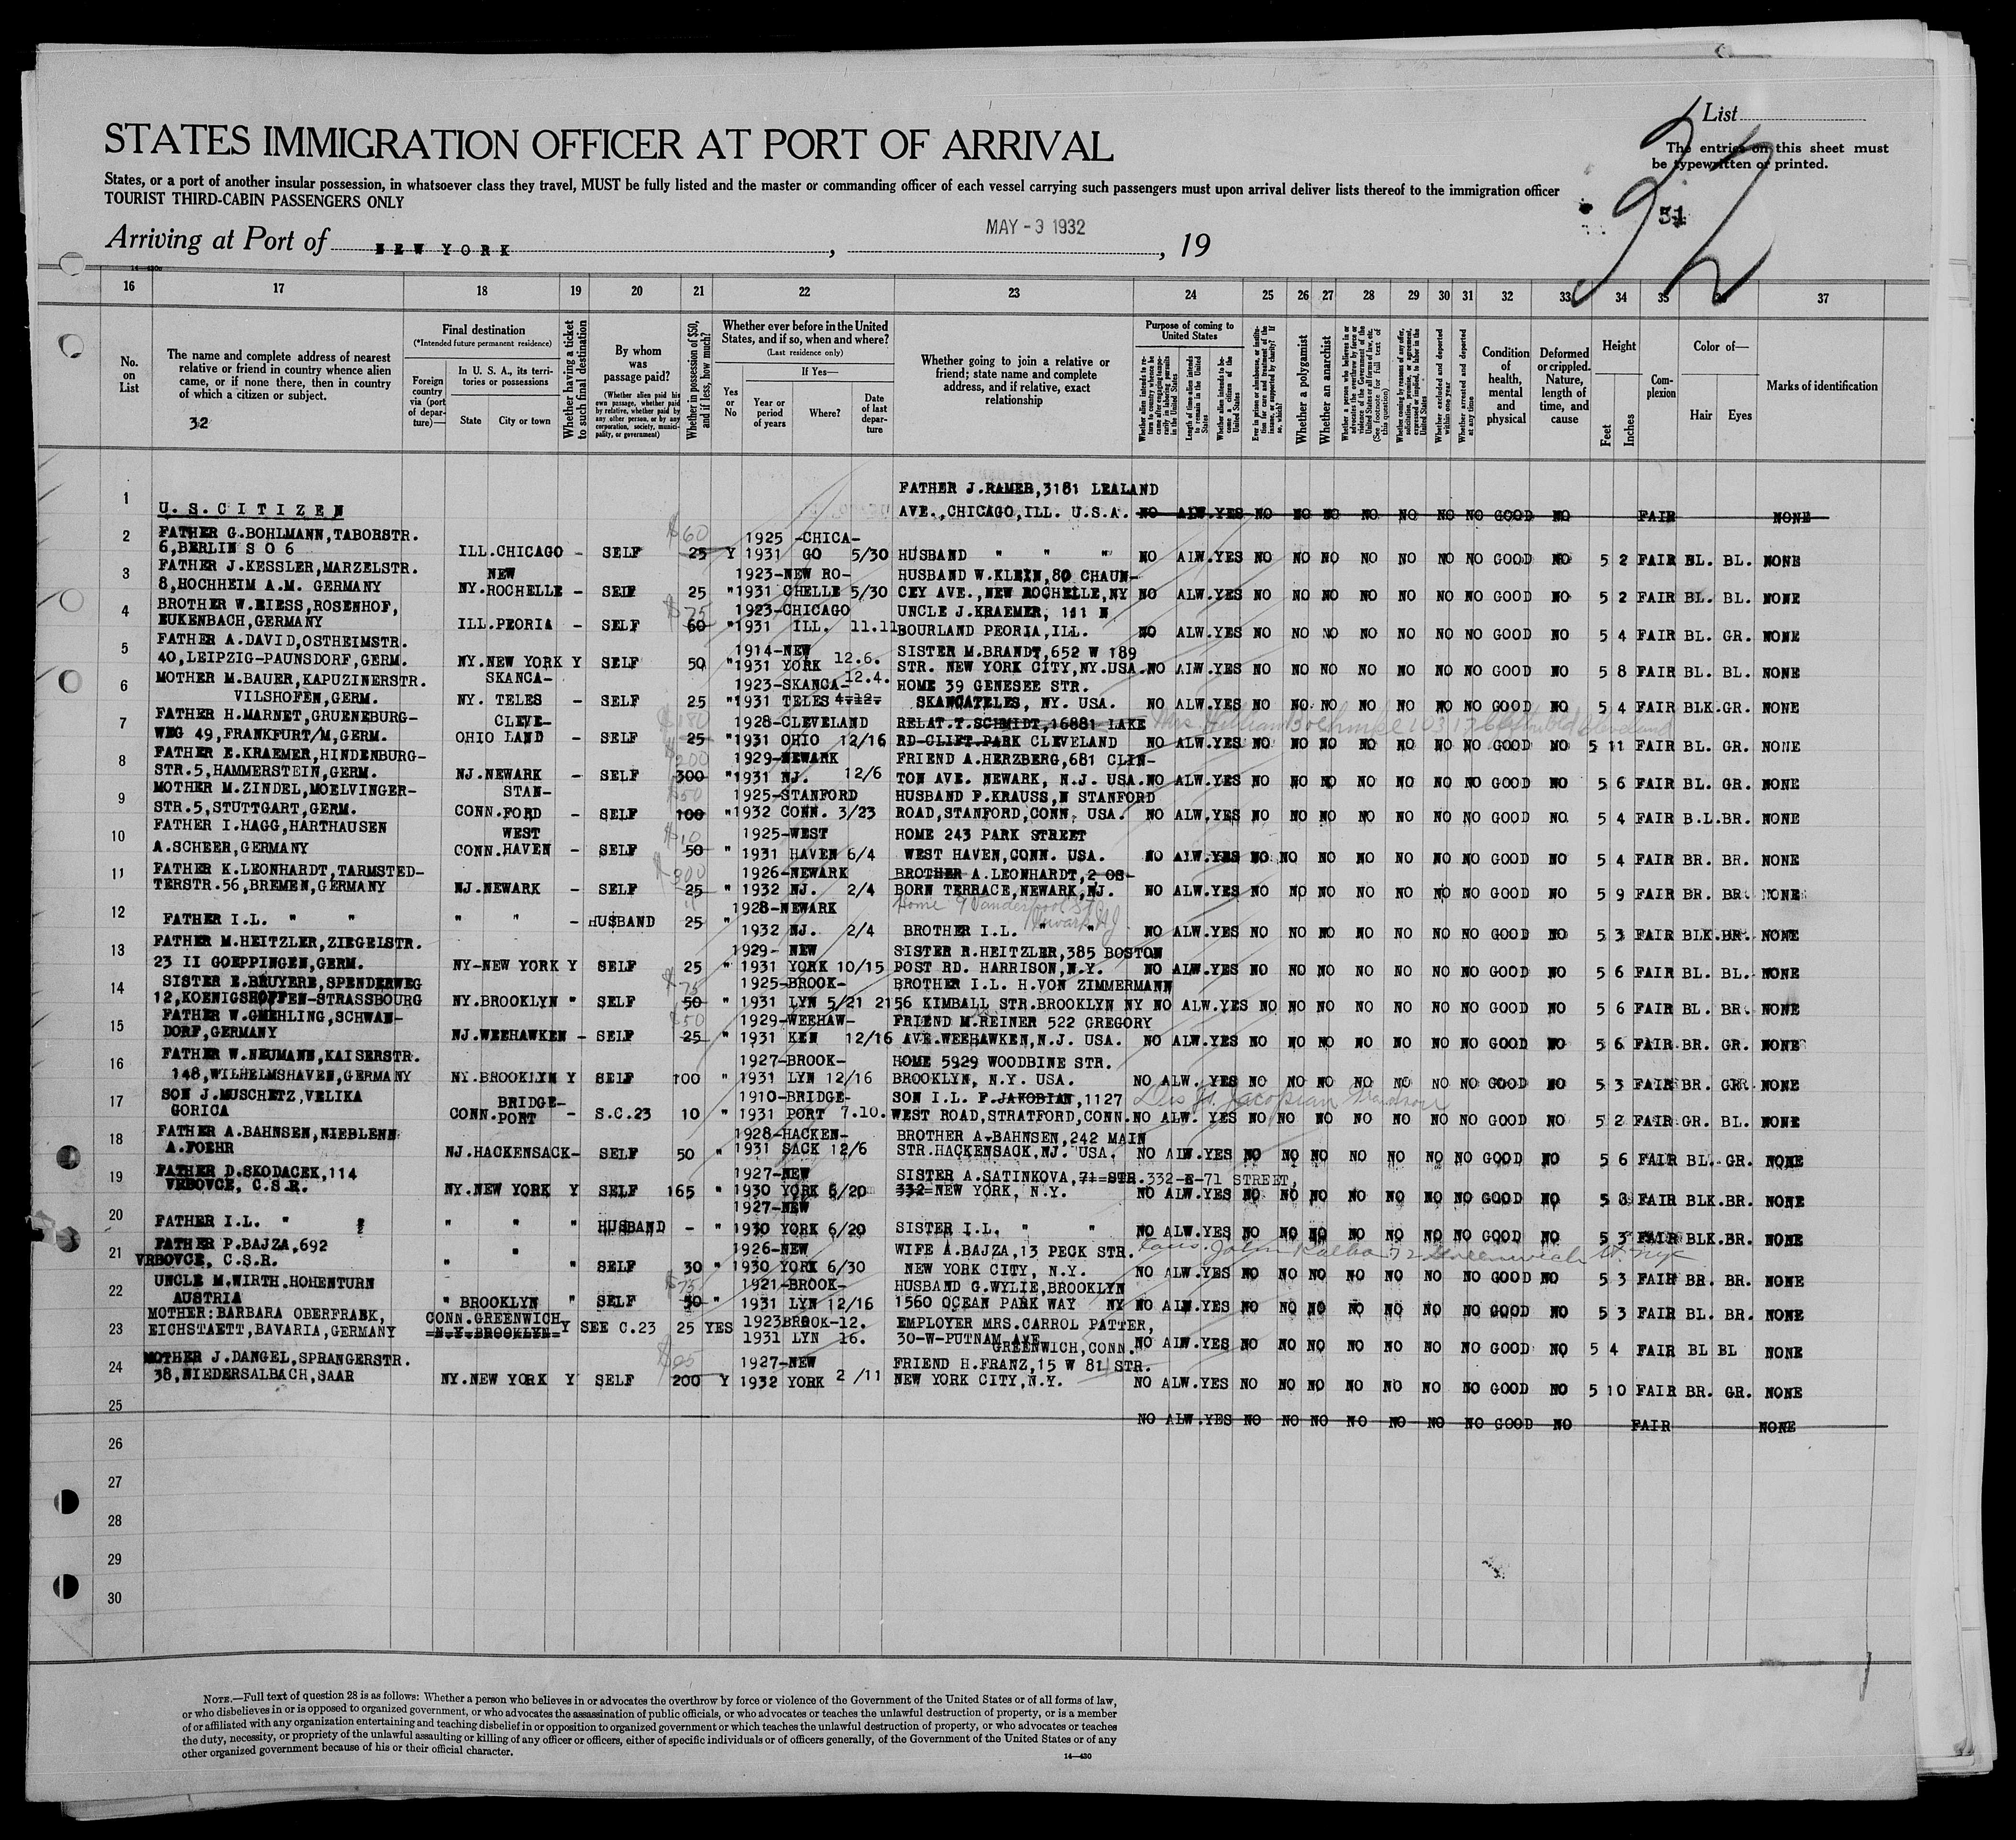 List
STATES IMMIGRATION OFFICER AT PORT OF ARRIVAL
The entries on this sheet must
be typewritten or printed.
States, or a port of another insular possession, in whatsoever class they travel, MUST be fully listed and the master or commanding officer of each vessel carrying such passengers must upon arrival deliver lists thereof to the immigration officer
TOURIST THIRD-CABIN PASSENGERS ONLY
31
Arriving at Port of NEW YORK, MAY - 3 1932, 19
16 17 18 19 20 21 22 23 24 25 26 27 28 29 30 31 32 33 34 35 37
No. on List
The name and complete address of nearest relative or friend in country whence alien came, or if none there, then in country of which a citizen or subject.
32
Final destination
(*Intended future permanent residence)
Foreign country via (port of departure)—
In U. S. A., its territories or possessions
State City or town
Whether having a ticket to such final destination
By whom was passage paid?
(Whether alien paid his own passage, whether paid by relative, whether paid by any other person, or by any corporation, society, municipality, or government)
Whether in possession of $50, and if less, how much?
Whether ever before in the United States, and if so, when and where?
(Last residence only)
Yes or No
If Yes—
Year or period of years
Where?
Date of last departure
Whether going to join a relative or friend; state name and complete address, and if relative, exact relationship
Purpose of coming to United States
Whether alien intends to return to country whence he came after engaging temporarily in laboring pursuits in the United States
Length of time alien intends to remain in the United States
Whether alien intends to become a citizen of the United States
Ever in prison or almshouse, or institution for care and treatment of the insane, or supported by charity? If so, which?
Whether a polygamist
Whether an anarchist
Whether a person who believes in or advocates the overthrow by force or violence of the Government of the United States or all forms of law, etc. (See footnote for full text of this question)
Whether coming by reasons of any offer, solicitation, promise, or agreement, expressed or implied, to labor in the United States
Whether excluded and deported within one year
Whether arrested and deported at any time
Condition of health, mental and physical
Deformed or crippled. Nature, length of time, and cause
Height
Feet Inches
Complexion
Color of—
Hair Eyes
Marks of identification
FATHER J.RAMER,3181 LEALAND
1 U.S.CITIZEN AVE.,CHICAGO,ILL. U.S.A. NO ALW.YES NO NO NO NO NO NO NO GOOD NO FAIR NONE
2 FATHER G.BOHLMANN,TABORSTR. $60 1925 -CHICA-
6,BERLIN S O 6 ILL.CHICAGO - SELF 25 Y 1931 GO 5/30 HUSBAND " " " NO ALW.YES NO NO NO NO NO NO NO GOOD NO 5 2 FAIR BL. BL. NONE
3 FATHER J.KESSLER,MARZELSTR. NEW 1923-NEW RO- HUSBAND W.KLEIN,80 CHAUN-
8,HOCHHEIM A.M. GERMANY NY.ROCHELLE - SELF 25 "1931 CHELLE 5/30 CEY AVE.,NEW ROCHELLE,NY NO ALW.YES NO NO NO NO NO NO NO GOOD NO 5 2 FAIR BL. BL. NONE
4 BROTHER W.RIESS,ROSENHOF, $75 1923-CHICAGO UNCLE J.KRAEMER, 111 N
EUKENBACH,GERMANY ILL.PEORIA - SELF 60 "1931 ILL. 11.11 BOURLAND PEORIA,ILL. NO ALW.YES NO NO NO NO NO NO NO GOOD NO 5 4 FAIR BL. GR. NONE
5 FATHER A.DAVID,OSTHEIMSTR. 1914-NEW SISTER M.BRANDT,652 W 189
40,LEIPZIG-PAUNSDORF,GERM. NY.NEW YORK Y SELF 50 "1931 YORK 12.6. STR. NEW YORK CITY,NY.USA.NO ALW.YES NO NO NO NO NO NO NO GOOD NO 5 8 FAIR BL. BL. NONE
6 MOTHER M.BAUER,KAPUZINERSTR. SKANCA- 1923-SKANCA- 12.4. HOME 39 GENESEE STR.
VILSHOFEN,GERM. NY. TELES - SELF 25 "1931 TELES 4.12. SKANCATELES, NY. USA. NO ALW.YES NO NO NO NO NO NO NO GOOD NO 5 4 FAIR BLK.GR. NONE
7 FATHER H.MARNET,GRUENEBURG- CLEVE- $180 1928-CLEVELAND RELAT.T.SCHMIDT,16881 LAKE
WEG 49,FRANKFURT/M,GERM. OHIO LAND - SELF 25 "1931 OHIO 12/16 RD-CLIFT.PARK CLEVELAND NO ALW.YES NO NO NO NO NO NO NO GOOD NO 5 11 FAIR BL. GR. NONE
8 FATHER E.KRAEMER,HINDENBURG- $200 1929-NEWARK FRIEND A.HERZBERG,681 CLIN-
STR.5,HAMMERSTEIN,GERM. NJ.NEWARK - SELF 300 "1931 NJ. 12/6 TON AVE. NEWARK, N.J. USA.NO ALW.YES NO NO NO NO NO NO NO GOOD NO 5 6 FAIR BL. GR. NONE
9 MOTHER M.ZINDEL,MOELVINGER- STAN- $50 1925-STANFORD HUSBAND F.KRAUSS,N STANFORD
STR.5,STUTTGART,GERM. CONN.FORD - SELF 100 "1932 CONN. 3/23 ROAD,STANFORD,CONN. USA. NO ALW.YES NO NO NO NO NO NO NO GOOD NO. 5 4 FAIR B.L.BR. NONE
10 FATHER I.HAGG,HARTHAUSEN WEST $10 1925-WEST HOME 243 PARK STREET
A.SCHEER,GERMANY CONN.HAVEN - SELF 50 " 1931 HAVEN 6/4 WEST HAVEN,CONN. USA. NO ALW.YES NO NO NO NO NO NO NO GOOD NO 5 4 FAIR BR. BR. NONE
11 FATHER K.LEONHARDT,TARMSTED- $300 1926-NEWARK BROTHER A.LEONHARDT,2 OS-
TERSTR.56,BREMEN,GERMANY NJ.NEWARK - SELF 25 " 1932 NJ. 2/4 BORN TERRACE,NEWARK,NJ. NO ALW.YES NO NO NO NO NO NO NO GOOD NO 5 9 FAIR BR. BR. NONE
12 1928-NEWARK Home 9 Vanderpool St
FATHER I.L. " " " " - HUSBAND 25 " Newark NJ.
1932 NJ. 2/4 BROTHER I.L. " " NO ALW.YES NO NO NO NO NO NO NO GOOD NO 5 3 FAIR BLK.BR. NONE
13 FATHER M.HEITZLER,ZIEGELSTR. 1929- NEW SISTER R.HEITZLER,385 BOSTON
23 II GOEPPINGEN,GERM. NY-NEW YORK Y SELF 25 " 1931 YORK 10/15 POST RD. HARRISON,N.Y. NO ALW.YES NO NO NO NO NO NO NO GOOD NO 5 6 FAIR BL. BL. NONE
14 SISTER E.BRUYERE,SPENDERWEG $75 1925-BROOK- BROTHER I.L. H.VON ZIMMERMANN
12,KOENIGSHOFFEN-STRASSBOURG NY.BROOKLYN " SELF 50 " 1931 LYN 5/21 2156 KIMBALL STR.BROOKLYN NY NO ALW.YES NO NO NO NO NO NO NO GOOD NO 5 6 FAIR BL. BR. NONE
15 FATHER W.GMEHLING,SCHWAN- $50 1929-WEEHAW- FRIEND M.REINER 522 GREGORY
DORF,GERMANY NJ.WEEHAWKEN - SELF 25 " 1931 KEN 12/16 AVE.WEEHAWKEN,N.J. USA. NO ALW.YES NO NO NO NO NO NO NO GOOD NO 5 6 FAIR BR. GR. NONE
16 FATHER W.NEUMANN,KAISERSTR. 1927-BROOK- HOME 5929 WOODBINE STR.
148,WILHELMSHAVEN,GERMANY NY.BROOKLYN Y SELF 100 " 1931 LYN 12/16 BROOKLYN, N.Y. USA. NO ALW. YES NO NO NO NO NO NO NO GOOD NO 5 3 FAIR BR. GR. NONE
17 SON J.MUSCHETZ,VELIKA BRIDGE- 1910-BRIDGE- SON I.L. F.JAKOBIAN,1127
GORICA CONN.PORT - S.C.23 10 " 1931 PORT 7.10. WEST ROAD,STRATFORD,CONN.NO ALW. YES NO NO NO NO NO NO NO GOOD NO 5 2 FAIR GR. BL. NONE
18 FATHER A.BAHNSEN,NIEBLENN 1928-HACKEN- BROTHER A.BAHNSEN,242 MAIN
A.FOEHR NJ.HACKENSACK- SELF 50 " 1931 SACK 12/6 STR.HACKENSACK,NJ. USA. NO ALW.YES NO NO NO NO NO NO NO GOOD NO 5 6 FAIR BL. GR. NONE
19 FATHER D.SKODACEK,114 1927-NEW SISTER A.SATINKOVA,71 STR.332-E-71 STREET,
VRBOVCE, C.S.R. NY.NEW YORK Y SELF 165 " 1930 YORK 6/20 332 NEW YORK, N.Y. NO ALW.YES NO NO NO NO NO NO NO GOOD NO 5 8 FAIR BLK.BR. NONE
20 1927-NEW
FATHER I.L. " " " " " HUSBAND - " 1930 YORK 6/20 SISTER I.L. " " NO ALW.YES NO NO NO NO NO NO NO GOOD NO 5 3 FAIR BLK.BR. NONE
21 FATHER P.BAJZA,692 " 1926-NEW WIFE A.BAJZA,13 PECK STR.
VRBOVCE, C.S.R. " " SELF 30 " 1930 YORK 6/30 NEW YORK CITY, N.Y. NO ALW.YES NO NO NO NO NO NO NO GOOD NO 5 3 FAIR BR. BR. NONE
22 UNCLE M.WIRTH.HOHENTURN $75 1921-BROOK- HUSBAND G.WYLIE,BROOKLYN
AUSTRIA " BROOKLYN " SELF 30 " 1931 LYN 12/16 1560 OCEAN PARK WAY NY NO ALW.YES NO NO NO NO NO NO NO GOOD NO 5 3 FAIR BL. BR. NONE
23 MOTHER:BARBARA OBERFRANK, CONN.GREENWICH 1923BROOK-12. EMPLOYER MRS.CARROL PATTER,
EICHSTAETT,BAVARIA,GERMANY N.Y.BROOKLYN Y SEE C.23 25 YES 1931 LYN 16. 30-W-PUTNAM AVE
GREENWICH,CONN. NO ALW.YES NO NO NO NO NO NO NO GOOD NO 5 4 FAIR BL BL NONE
24 MOTHER J.DANGEL,SPRANGERSTR. 1927-NEW FRIEND H.FRANZ,15 W 81 STR.
38,NIEDERSALBACH,SAAR NY.NEW YORK Y SELF 200 Y 1932 YORK 2 /11 NEW YORK CITY,N.Y. NO ALW.YES NO NO NO NO NO NO NO GOOD NO 5 10 FAIR BR. GR. NONE
25 NO ALW.YES NO NO NO NO NO NO NO GOOD NO FAIR NONE
26
27
28
29
30
NOTE.—Full text of question 28 is as follows: Whether a person who believes in or advocates the overthrow by force or violence of the Government of the United States or of all forms of law,
or who disbelieves in or is opposed to organized government, or who advocates the assassination of public officials, or who advocates or teaches the unlawful destruction of property, or is a member
of or affiliated with any organization entertaining and teaching disbelief in or opposition to organized government or which teaches the unlawful destruction of property, or who advocates or teaches
the duty, necessity, or propriety of the unlawful assaulting or killing of any officer or officers, either of specific individuals or of officers generally, of the Government of the United States or of any
other organized government because of his or their official character.
14—430